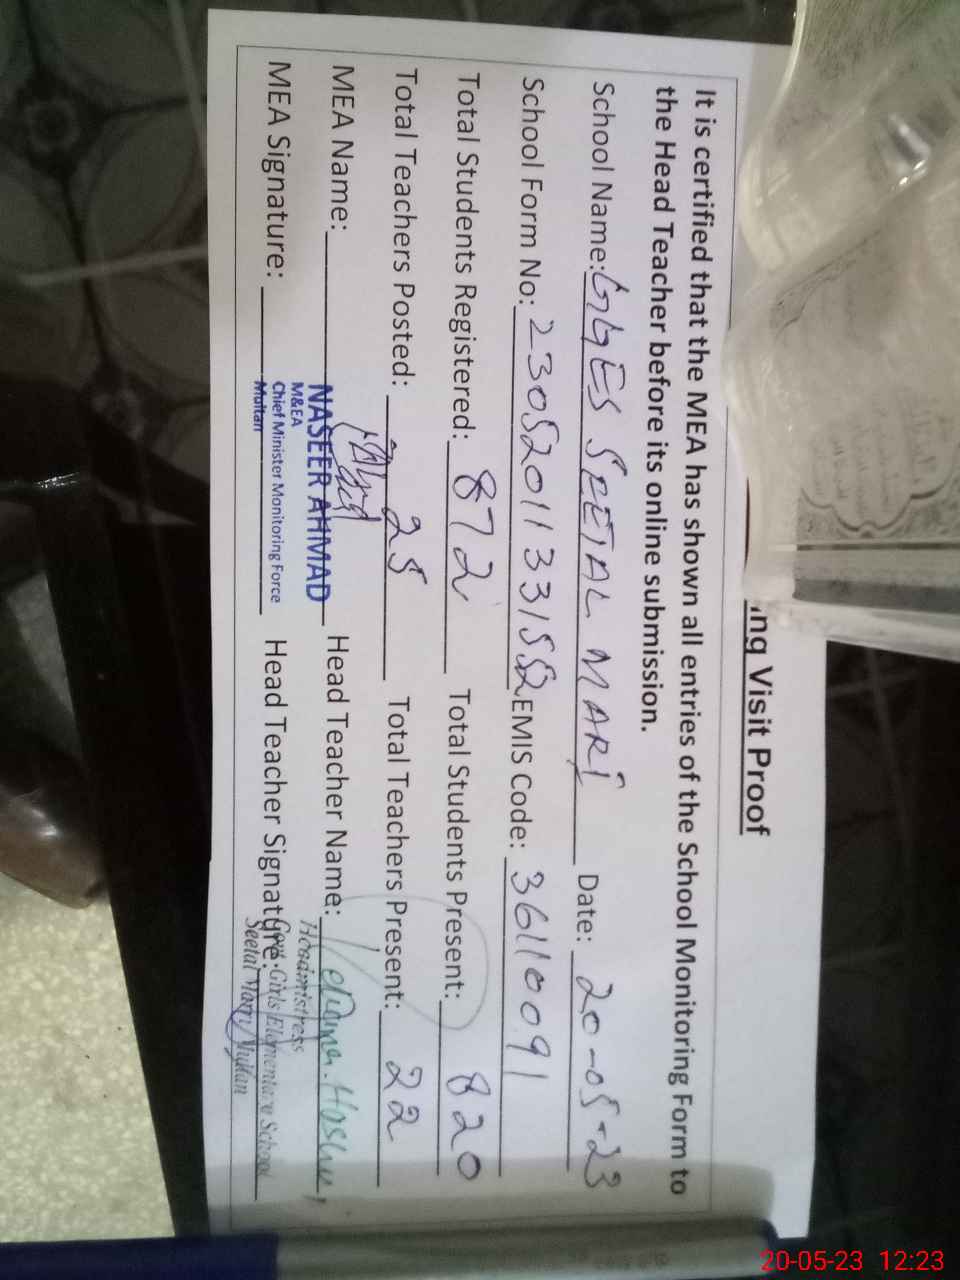 ing Visit Proof
It is certified that the MEA has shown all entries of the School Monitoring Form to
the Head Teacher before its online submission.
School Name: GGES SEETAL MARI Date: 20-05-23
School Form No: 23052011331552 EMIS Code: 36110091
Total Students Registered: 872 Total Students Present: 820
Total Teachers Posted: 25 Total Teachers Present: 22
MEA Name: NASEER AHMAD Head Teacher Name:
M&EA
Chief Minister Monitoring Force
Multan
Headmistress
Govt. Girls Elementary School
Seetal Mari Multan
MEA Signature: Head Teacher Signature:
20-05-23 12:23